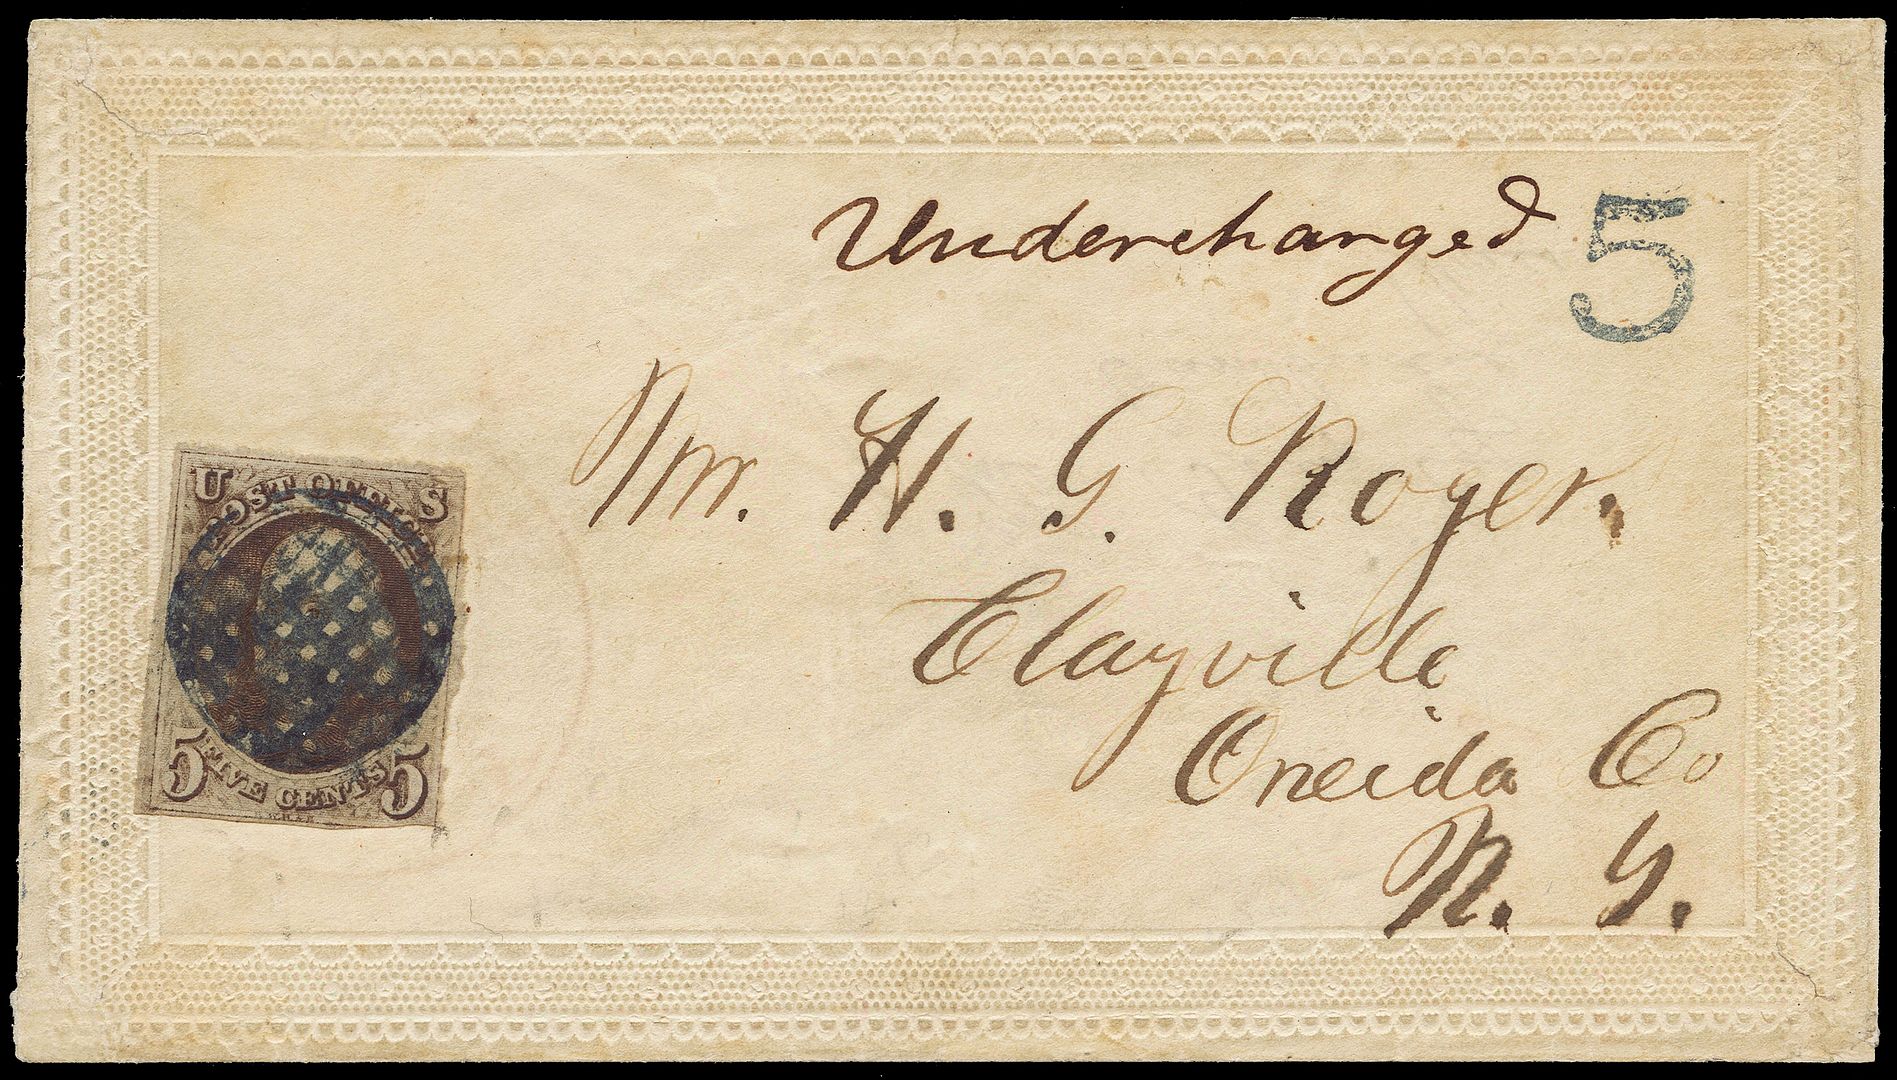 Undercharged 5
Mr. H. G. Roger.
Clayville
Oneida Co
N. Y.
U S
POST OFFICE
5 FIVE CENTS 5